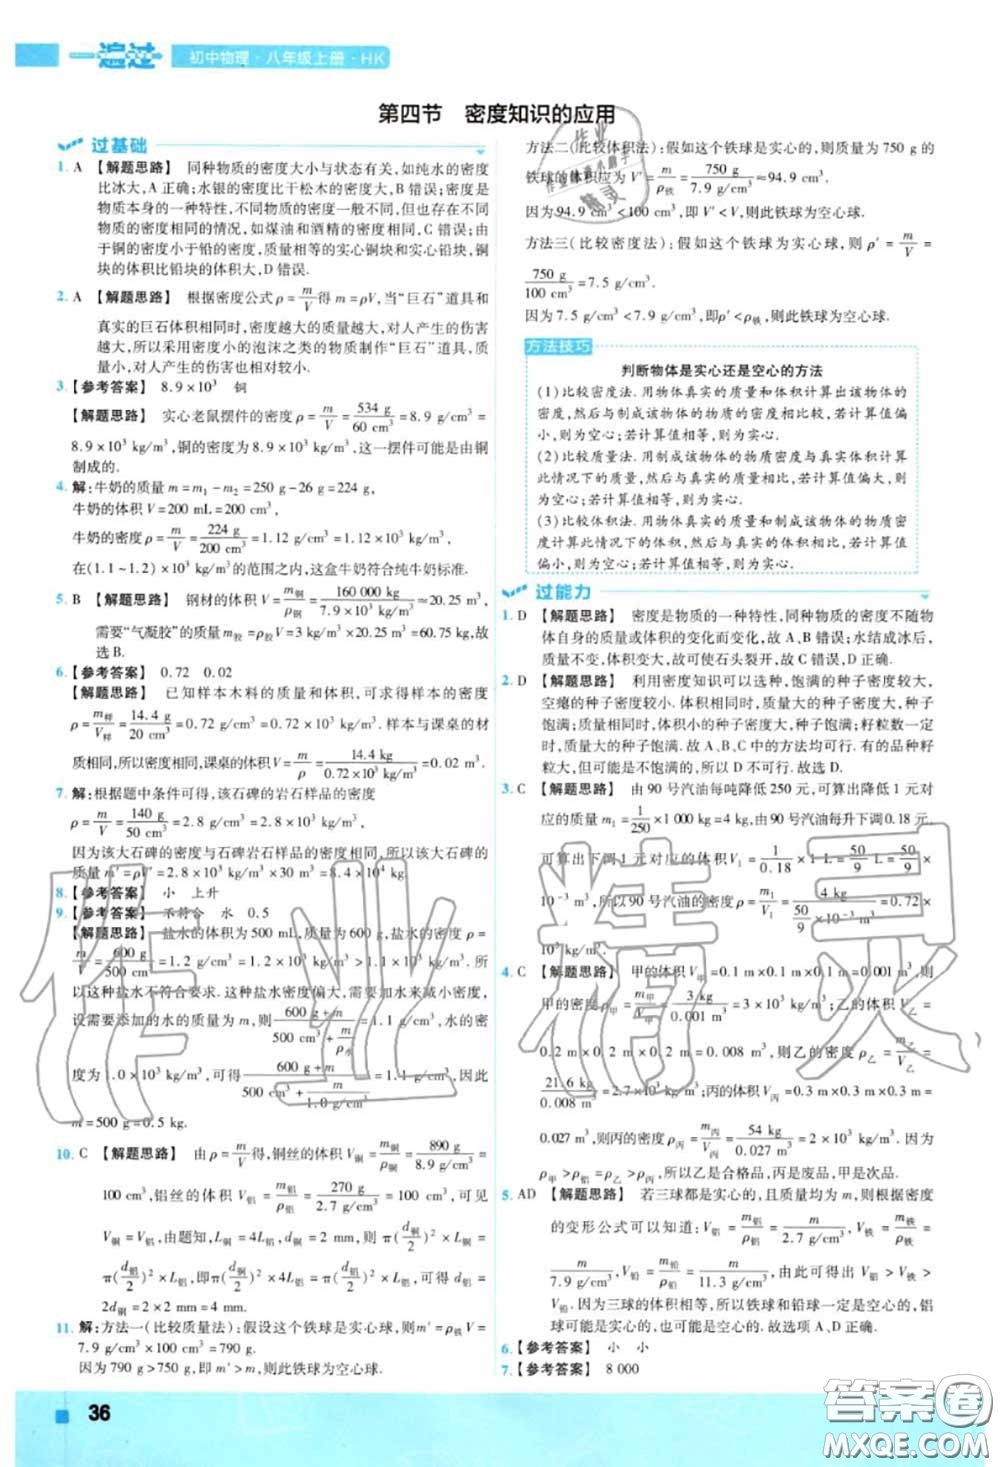 一遍过 初中物理·八年级上册·HK
第四节 密度知识的应用
过基础
1. A 【解题思路】 同种物质的密度大小与状态有关,如纯水的密度
比冰大,A 正确;水银的密度比干松木的密度大,B 错误;密度是
物质本身的一种特性,不同物质的密度一般不同,但也存在不同
物质的密度相同的情况,如煤油和酒精的密度相同,C 错误;由
于铜的密度小于铅的密度,质量相等的实心铜块和实心铅块,铜
块的体积比铅块的体积大,D 错误.
2. A 【解题思路】 根据密度公式 ρ = m/V 得 m = ρV,当“巨石”道具和
真实的巨石体积相同时,密度越大的质量越大,对人产生的伤害
越大,所以采用密度小的泡沫之类的物质制作“巨石”道具,质量
小,对人产生的伤害也可能小.
3. 【参考答案】 8.9 × 10³ 铜
【解题思路】 实心老鼠摆件的密度 ρ = m/V = 534 g/60 cm³ = 8.9 g/cm³ =
8.9 × 10³ kg/m³,铜的密度为 8.9 × 10³ kg/m³,这一摆件可能是由铜
制成的.
4. 解:牛奶的质量 m = m₁ - m₂ = 250 g - 26 g = 224 g,
牛奶的体积 V = 200 mL = 200 cm³,
牛奶的密度 ρ = m/V = 224 g/200 cm³ = 1.12 g/cm³ = 1.12 × 10³ kg/m³,
在(1.1~1.2) × 10³ kg/m³ 的范围之内,这盒牛奶符合纯牛奶标准.
5. B 【解题思路】 钢材的体积 V = m钢/ρ钢 = 160 000 kg/7.9 × 10³ kg/m³ ≈ 20.25 m³,
需要“气凝胶”的质量 m胶 = ρ胶V = 3 kg/m³ × 20.25 m³ = 60.75 kg,故
选 B.
6. 【参考答案】 0.72 0.02
【解题思路】 已知样本木料的质量和体积,可求得样本的密度
ρ = m样/V样 = 14.4 g/20 cm³ = 0.72 g/cm³ = 0.72 × 10³ kg/m³. 样本与课桌的材
质相同,所以密度相同,课桌的体积 V = m/ρ = 14.4 kg/0.72 × 10³ kg/m³ = 0.02 m³.
7. 解:根据题中条件可得,该石碑的岩石样品的密度
ρ = m/V = 140 g/50 cm³ = 2.8 g/cm³ = 2.8 × 10³ kg/m³,
因为该大石碑的密度与石碑岩石样品的密度相同,所以该大石碑的
质量 m' = ρV' = 2.8 × 10³ kg/m³ × 30 m³ = 8.4 × 10⁴ kg.
8. 【参考答案】 小 上升
9. 【参考答案】 不符合 水 0.5
【解题思路】 盐水的体积为 500 mL,质量为 600 g,盐水的密度 ρ =
m/V = 600 g/500 cm³ = 1.2 g/cm³ = 1.2 × 10³ kg/m³ > 1.1 × 10³ kg/m³. 所
以这种盐水不符合要求. 这种盐水密度偏大,需要加水来减小密度,
设需要添加的水的质量为 m,则 600 g + m/500 cm³ + m/ρ水 = 1.1 g/cm³,水的密
度为 1.0 × 10³ kg/m³,可得 600 g + m/500 cm³ + m/1.0 g/cm³ = 1.1 g/cm³,因此
m = 500 g = 0.5 kg.
10. C 【解题思路】 由 ρ = m/V 得,铜丝的体积 V铜 = m铜/ρ铜 = 890 g/8.9 g/cm³ =
100 cm³,铝丝的体积 V铝 = m铝/ρ铝 = 270 g/2.7 g/cm³ = 100 cm³,可见
V铜 = V铝,由题知,L铜 = 4L铝,由体积公式得 π(d铜/2)² × L铜 =
π(d铝/2)² × L铝,即 π(d铜/2)² × 4L铝 = π(d铝/2)² × L铝,可得 d铝 =
2d铜 = 2 × 2 mm = 4 mm.
11. 解:方法一(比较质量法):假设这个铁球是实心球,则 m' = ρ铁V =
7.9 g/cm³ × 100 cm³ = 790 g.
因为 790 g > 750 g,即 m' > m,则此铁球为空心球.
方法二(比较体积法):假如这个铁球是实心的,则质量为 750 g 的
铁球的体积应为 V' = m/ρ铁 = 750 g/7.9 g/cm³ ≈ 94.9 cm³.
因为 94.9 cm³ < 100 cm³,即 V' < V,所以,则此铁球为空心球.
方法三(比较密度法):假如这个铁球为实心球,则 ρ' = m/V =
750 g/100 cm³ = 7.5 g/cm³.
因为 7.5 g/cm³ < 7.9 g/cm³,即ρ' < ρ铁,所以此铁球为空心球.
方法技巧
判断物体是实心还是空心的方法
(1)比较密度法. 用物体真实的质量和体积计算出该物体的
密度,然后与制成该物体的物质的密度相比较,若计算值偏
小,则为空心;若计算值相等,则为实心.
(2)比较质量法. 用制成该物体的物质密度与真实体积计算
此情况下的质量,然后与真实的质量相比较,若计算值偏大,则
为空心;若计算值相等,则为实心.
(3)比较体积法. 用物体真实的质量和制成该物体的物质密
度计算此情况下的体积,然后与真实的体积相比较,若计算值
偏小,则为空心;若计算值相等,则为实心.
过能力
1. D 【解题思路】 密度是物质的一种特性,同种物质的密度不随物
体自身的质量或体积的变化而变化,故 A、B 错误;水结成冰后,
质量不变,体积变大,故可使石头裂开,故 C 错误,D 正确.
2. D 【解题思路】 利用密度知识可以选种,饱满的种子密度较大,
空瘪的种子密度较小. 体积相同时,质量大的种子密度大,种子
饱满;质量相同时,体积小的种子密度大,种子饱满;籽粒数一定
时,质量大的种子饱满. 故 A、B、C 中的方法均可行. 有的品种籽
粒大,但可能是不饱满的,所以 D 不可行. 故选 D.
3. C 【解题思路】 由 90 号汽油每吨降低 250 元,可算出降低 1 元对
应的质量 m₁ = 1/250 × 1 000 kg = 4 kg,由 90 号汽油每升下调0.18 元,
可算出下调 1 元对应的体积 V₁ = 1/0.18 × 1 L = 50/9 L = 50/9 ×
10⁻³ m³,所以 90 号汽油的密度 ρ = m₁/V₁ = 4 kg/50/9 × 10⁻³ m³ = 0.72 ×
10³ kg/m³.
4. C 【解题思路】 甲的体积 V甲 = 0.1 m × 0.1 m × 0.1 m = 0.001 m³,则
甲的密度 ρ甲 = m甲/V甲 = 3 kg/0.001 m³ = 3 × 10³ kg/m³;乙的体积 V乙 =
0.2 m × 0.2 m × 0.2 m = 0.008 m³,则乙的密度 ρ乙 = m乙/V乙 =
21.6 kg/0.008 m³ = 2.7 × 10³ kg/m³;丙的体积 V丙 = 0.3 m × 0.3 m × 0.3 m =
0.027 m³,则丙的密度 ρ丙 = m丙/V丙 = 54 kg/0.027 m³ = 2 × 10³ kg/m³,可得
ρ甲 > ρ乙 > ρ丙,所以乙是合格品,丙是废品,甲是次品.
5. AD 【解题思路】 若三球都是实心的,且质量均为 m,则根据密度
的变形公式可以知道:V铝 = m铝/ρ铝 = m/2.7 g/cm³,V铁 = m铁/ρ铁 =
m/7.9 g/cm³,V铅 = m铅/ρ铅 = m/11.3 g/cm³,所以可得 V铝 > V铁 >
V铅. 因为三球的体积相等,所以铁球和铝球一定是空心的,铅
球可能是实心的,也可能是空心的. 故选项 A、D 正确.
6. 【参考答案】 小 小
7. 【参考答案】 8 000
36
作业精灵
答案圈
MXQE.COM